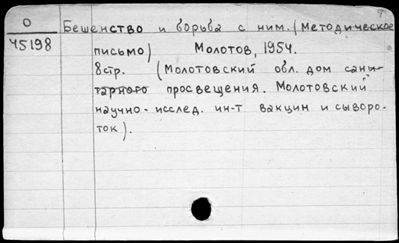 О
45198
Бешенство и борьба с ним. (Методическое
письмо) Молотов, 1954.
8стр. (Молотовский обл. дом сани-
тарного просвещения. Молотовский
научно-исслед. ин-т вакцин и сыворо-
ток).